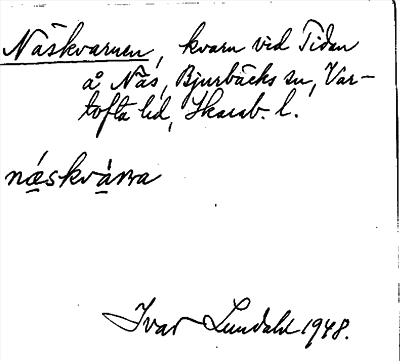 Näskvarnen, kvarn vid Tidan
å Näs, Bjurbäcks sn, Var-
tofta hd, Skarab. l.
næskvàrna
Ivar Lundahl 1948.